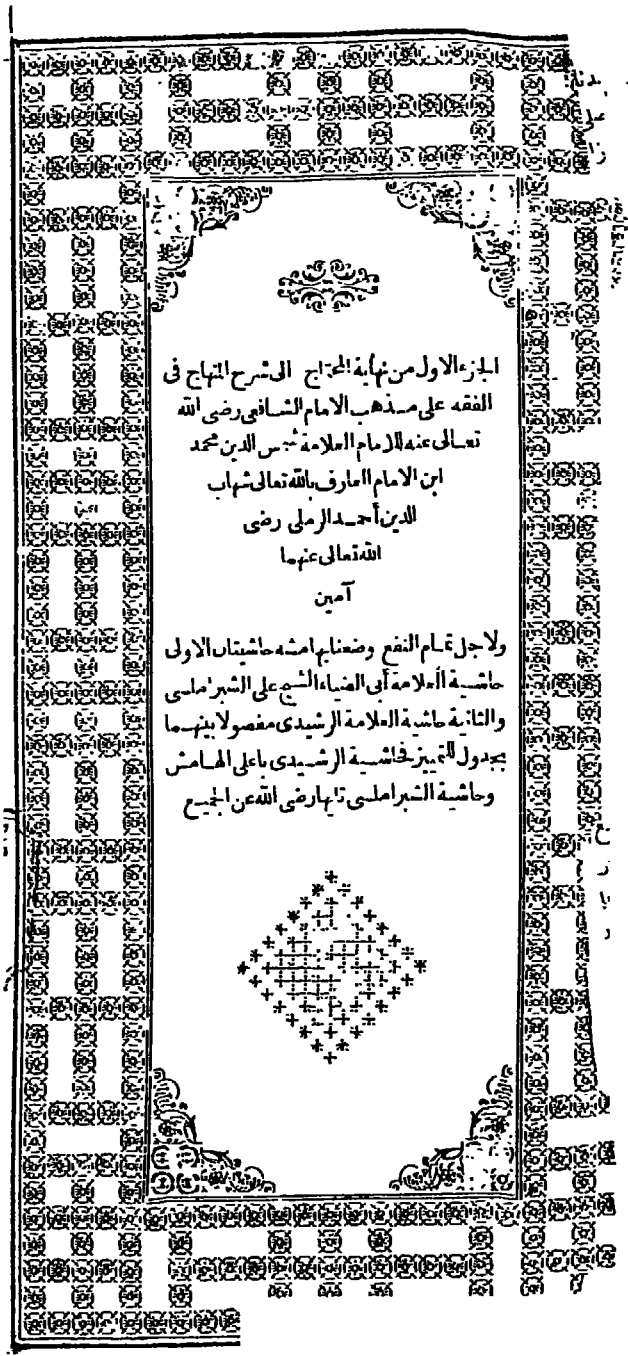 الجزء الاول من نهاية المحتاج الى شرح المنهاج فى
الفقه على مذهب الامام الشافعى رضى الله
تعالى عنه للامام العلامة شمس الدين محمد
ابن الامام العارف بالله تعالى شهاب
الدين أحمد الرملى رضى
الله تعالى عنهما
آمين
ولاجل تمام النفع وضعنا بهامشه حاشيتان الاولى
حاشية العلامة أبى الضياء الشيخ على الشبراملسى
والثانية حاشية العلامة الرشيدى مفصولا بينهما
بجدول للتمييز فحاشية الرشيدى باعلى الهامش
وحاشية الشبراملسى تليها رضى الله عن الجميع